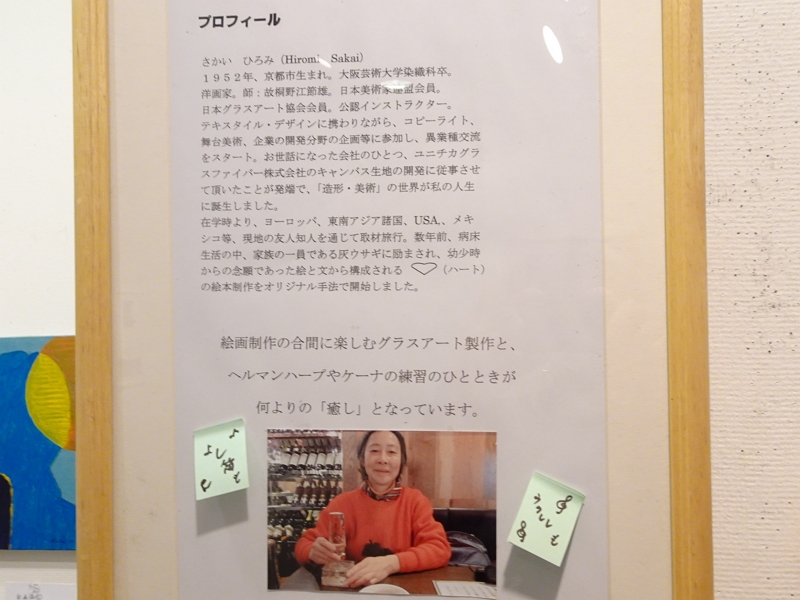 プロフィール
さかい ひろみ（Hiromi Sakai）
１９５２年、京都市生まれ。大阪芸術大学染織科卒。
洋画家。師：故桐野江節雄。日本美術家連盟会員。
日本グラスアート協会会員。公認インストラクター。
テキスタイル・デザインに携わりながら、コピーライト、
舞台美術、企業の開発分野の企画等に参加し、異業種交流
をスタート。お世話になった会社のひとつ、ユニチカグラ
スファイバー株式会社のキャンバス生地の開発に従事させ
て頂いたことが発端で、「造形・美術」の世界が私の人生
に誕生しました。
在学時より、ヨーロッパ、東南アジア諸国、USA,、メキ
シコ等、現地の友人知人を通じて取材旅行。数年前、病床
生活の中、家族の一員である灰ウサギに励まされ、幼少時
からの念願であった絵と文から構成される ♡（ハート）
の絵本制作をオリジナル手法で開始しました。
絵画制作の合間に楽しむグラスアート製作と、
ヘルマンハープやケーナの練習のひとときが
何よりの「癒し」となっています。
よし笛
も
うくしし
も